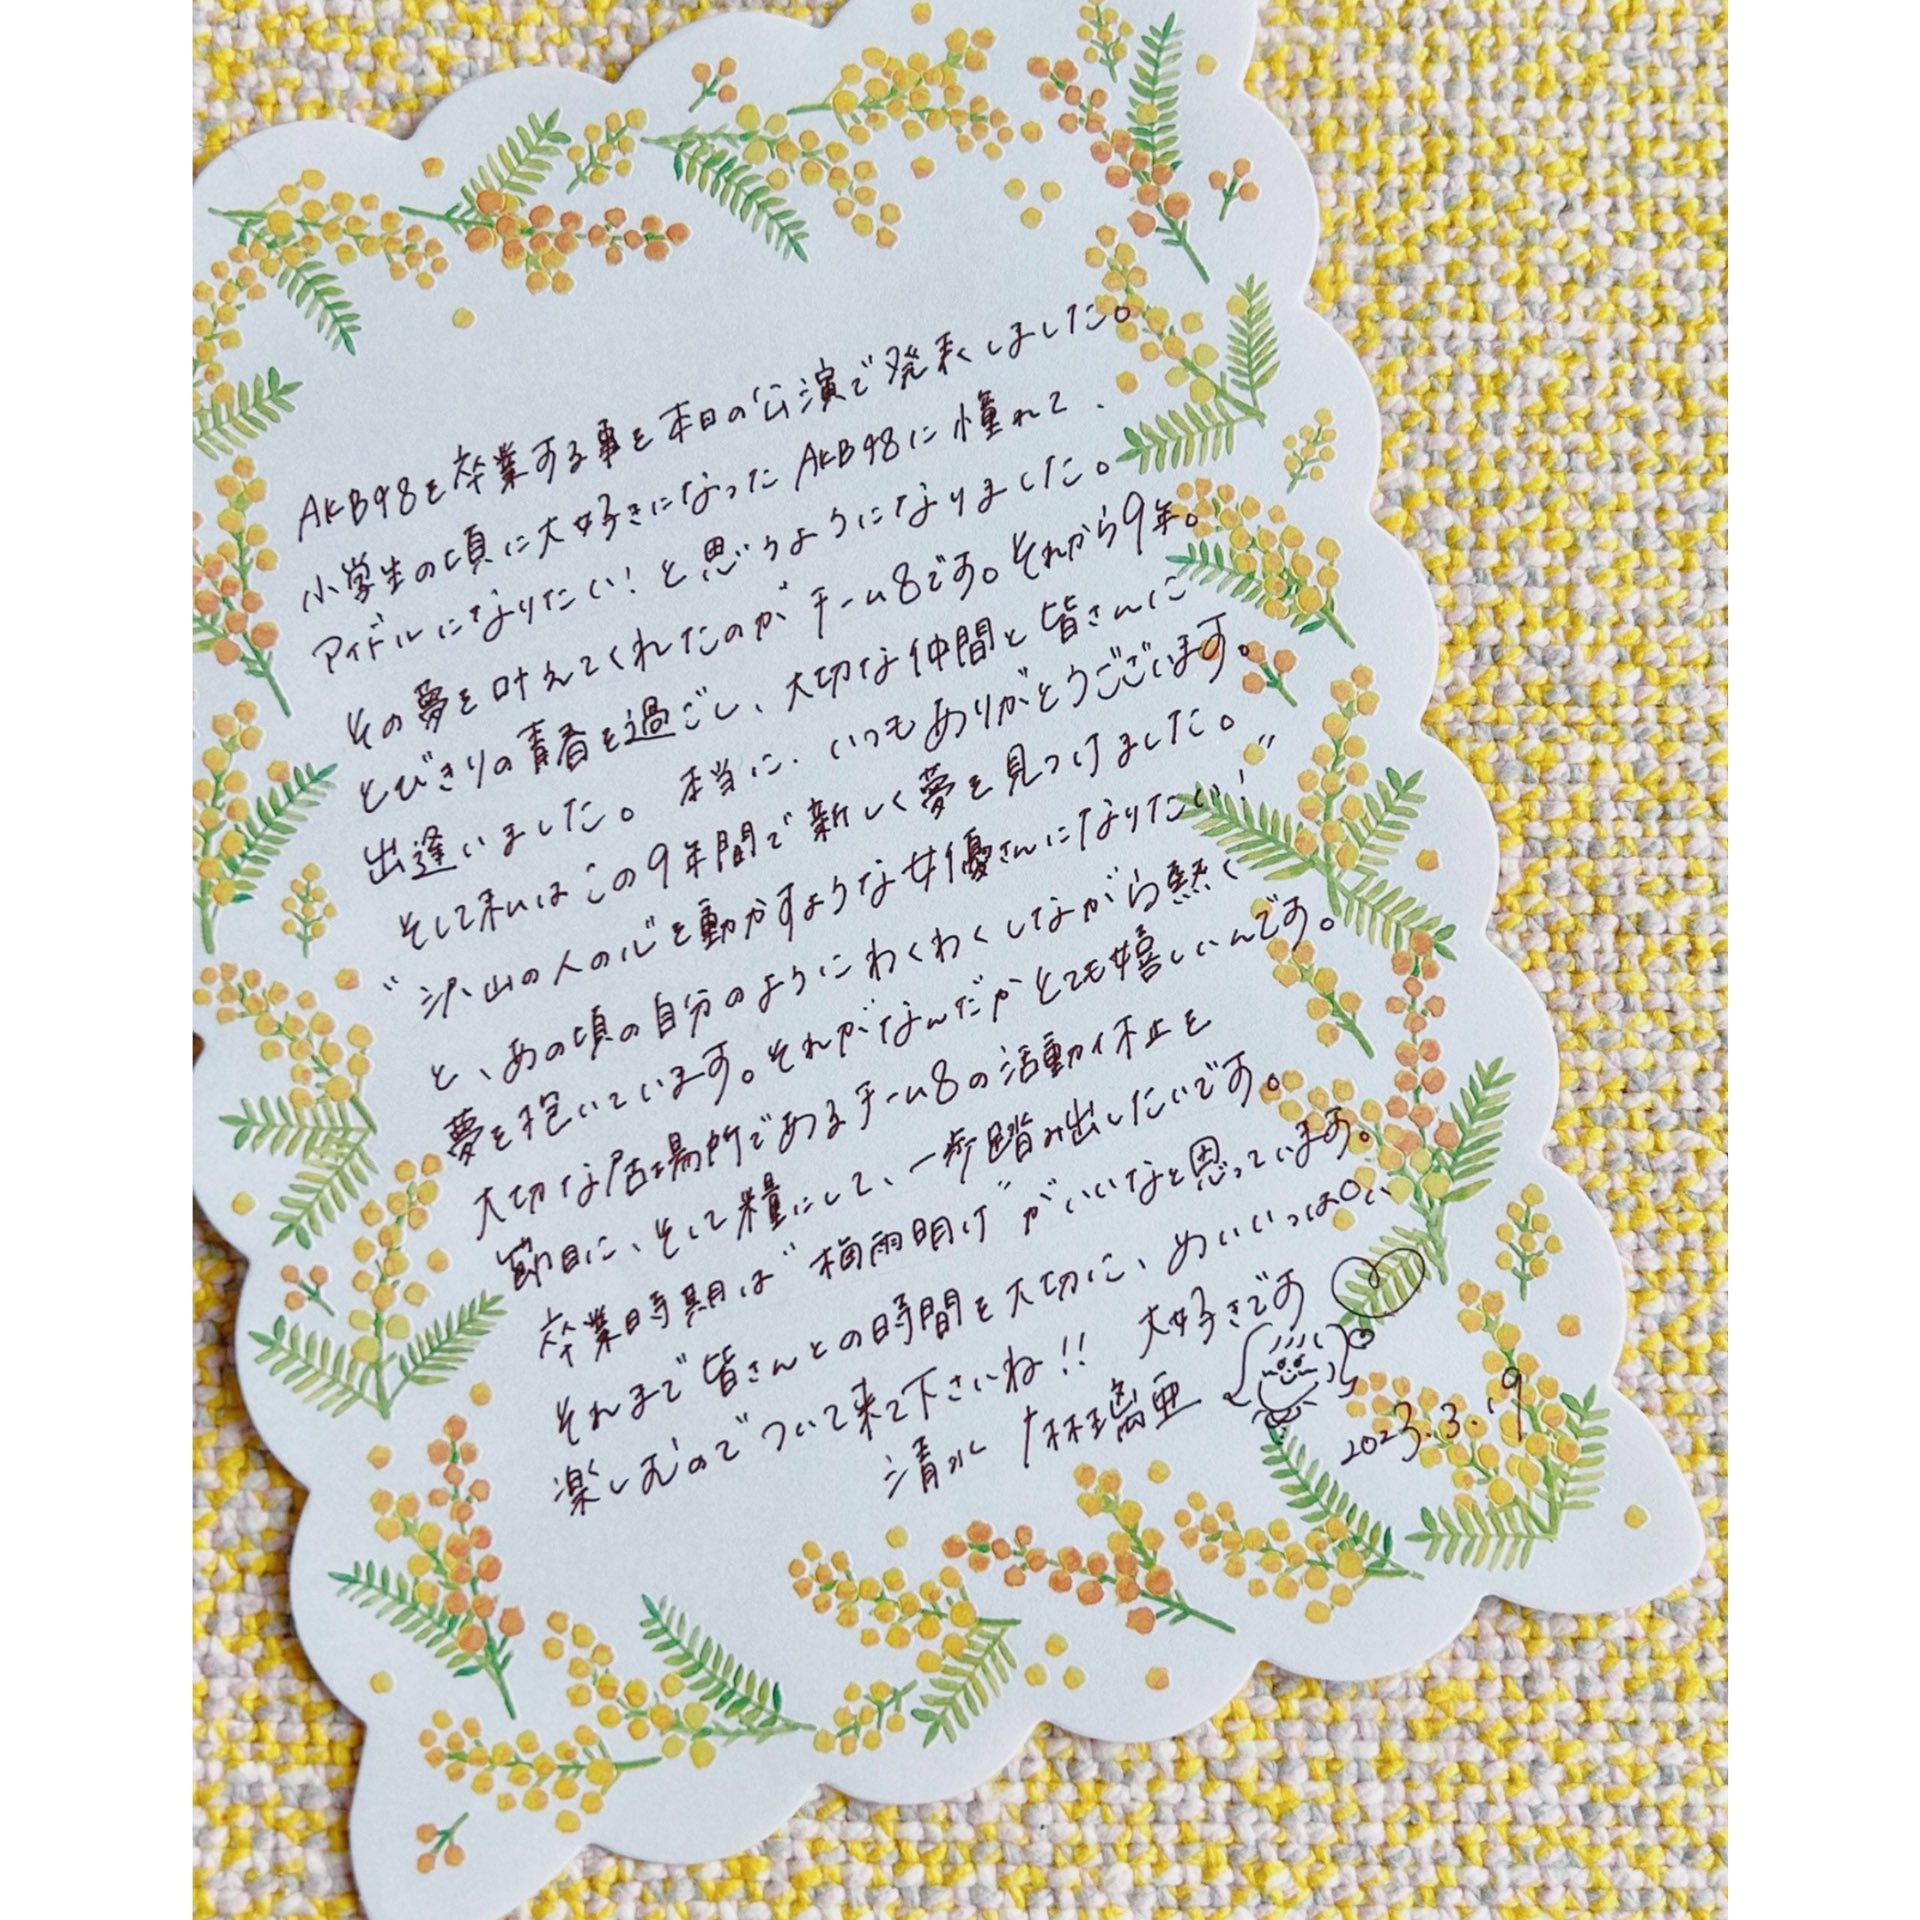 AKB48を卒業する事を本日の公演で発表しました。
小学生の頃に大好きになったAKB48に憧れて、
アイドルになりたい!と思うようになりました。
その夢を叶えてくれたのがチーム8です。それから9年。
とびきりの青春を過ごし、大切な仲間と皆さんに
出逢いました。本当に、いつもありがとうございます。
そして私はこの9年間で新しく夢を見つけました。
"沢山の人の心を動かすような女優さんになりたい!"
と、あの頃の自分のようにわくわくしながら熱く
夢を抱いています。それがなんだかとても嬉しいんです。
大切な居場所であるチーム8の活動休止を
節目に、そして糧にして、一歩踏み出したいです。
卒業時期は"梅雨明け"がいいなと思っています。
それまで皆さんとの時間を大切に、めいいっぱい
楽しむのでついて来て下さいね!! 大好きです
清水 麻璃亜
2023.3.19